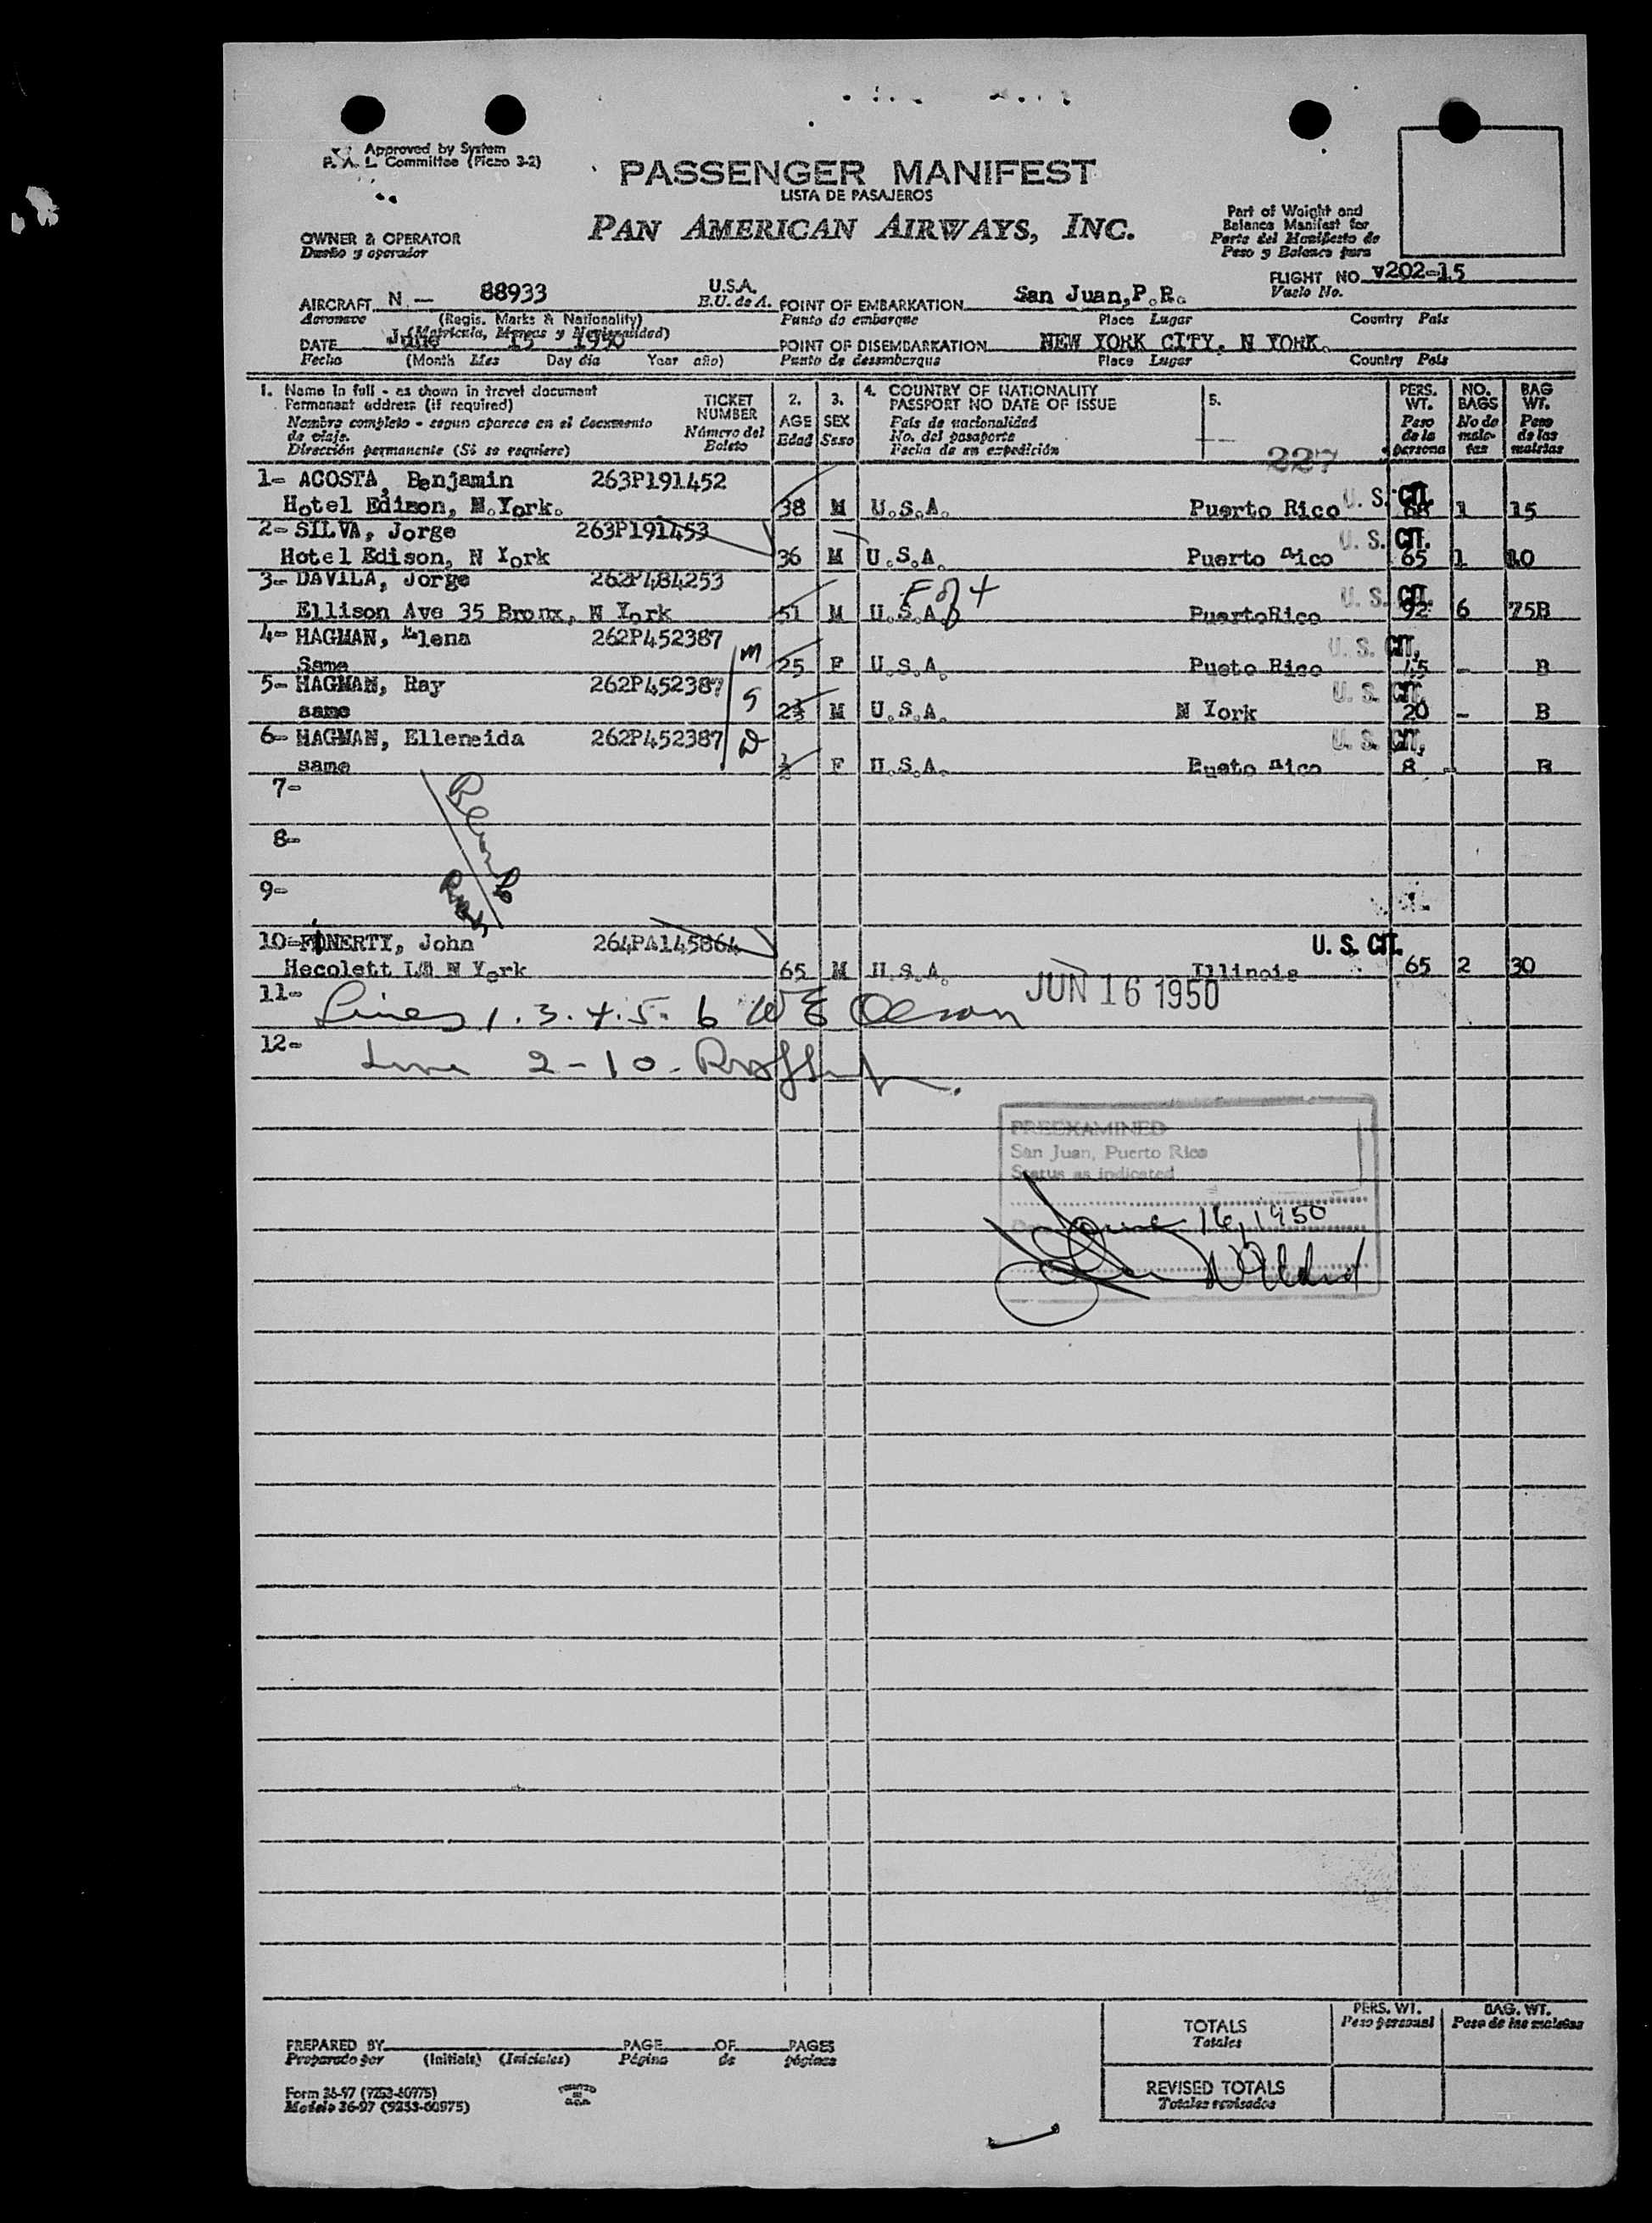 Approved by System
P. A. L. Committee (Piczo 3-2)
PASSENGER MANIFEST
LISTA DE PASAJEROS
PAN AMERICAN AIRWAYS, INC.
OWNER & OPERATOR
Dueño y operador
Part of Weight and
Balance Manifest for
Parte del Manifiesto de
Peso y Balance para
FLIGHT NO. V202-15
Vuelo No.
AIRCRAFT N - 88933 U.S.A.
Aeronave (Regis. Marks & Nationality) E.U. de A.
(Matricula, Marcas y Nacionalidad)
POINT OF EMBARKATION San Juan,P.R.
Punto de embarque Place Lugar Country Pais
DATE June 15 1950
Fecha (Month Mes Day dia Year año)
POINT OF DISEMBARKATION NEW YORK CITY, N YORK.
Punto de desembarque Place Lugar Country Pais
1. Name in full - as shown in travel document
Permanent address (if required)
Nombre completo - segun aparece en el documento
de viaje.
Dirección permanente (Si se requiere)
TICKET
NUMBER
Número del
Boleto
2.
AGE
Edad
3.
SEX
Sexo
4. COUNTRY OF NATIONALITY
PASSPORT NO DATE OF ISSUE
País de nacionalidad
No. del pasaporte
Fecha de su expedición
5.
227
PERS.
WT.
Peso
de la
persona
NO.
BAGS
No de
male-
tas
BAG
WT.
Peso
de las
maletas
1- ACOSTA, Benjamin 263P191452
Hotel Edison, N.York. 38 M U.S.A. Puerto Rico U. S. CIT. 68 1 15
2- SILVA, Jorge 263P191453
Hotel Edison, N York 36 M U.S.A. Puerto Rico U. S. CIT. 65 1 10
3- DAVILA, Jorge 262P484253
Ellison Ave 35 Bronx, N York 51 M U.S.A. F of 4 PuertoRico U. S. CIT. 92 6 75B
4- HAGMAN, Elena 262P452387 m
Same 25 F U.S.A. Pueto Rico U. S. CIT. 45 - B
5- HAGMAN, Ray 262P452387 S
same 2½ M U.S.A. N York U. S. CIT. 20 - B
6- HAGMAN, Elleneida 262P452387 D
same ½ F U.S.A. Pueto Rico U. S. CIT. 8 - B
7-
8-
9-
10-FINERTY, John 264PA145864
Hecolett I/M N York 65 M U.S.A. Illinois U. S. CIT. 65 2 30
JUN 16 1950
11- Lines 1.3.4.5.6 WE Olson
12- Line 2-10-
PREEXAMINED
San Juan, Puerto Rico
Status as indicated
June 16, 1950
TOTALS
Totales
PERS. WT.
Peso personal
BAG. WT.
Peso de las maletas
REVISED TOTALS
Totales revisados
PREPARED BY PAGE OF PAGES
Preparado por (Initials) (Iniciales) Página de páginas
Form 36-97 (9253-60975)
Modelo 36-97 (9253-60975)
PRINTED
IN
U.S.A.